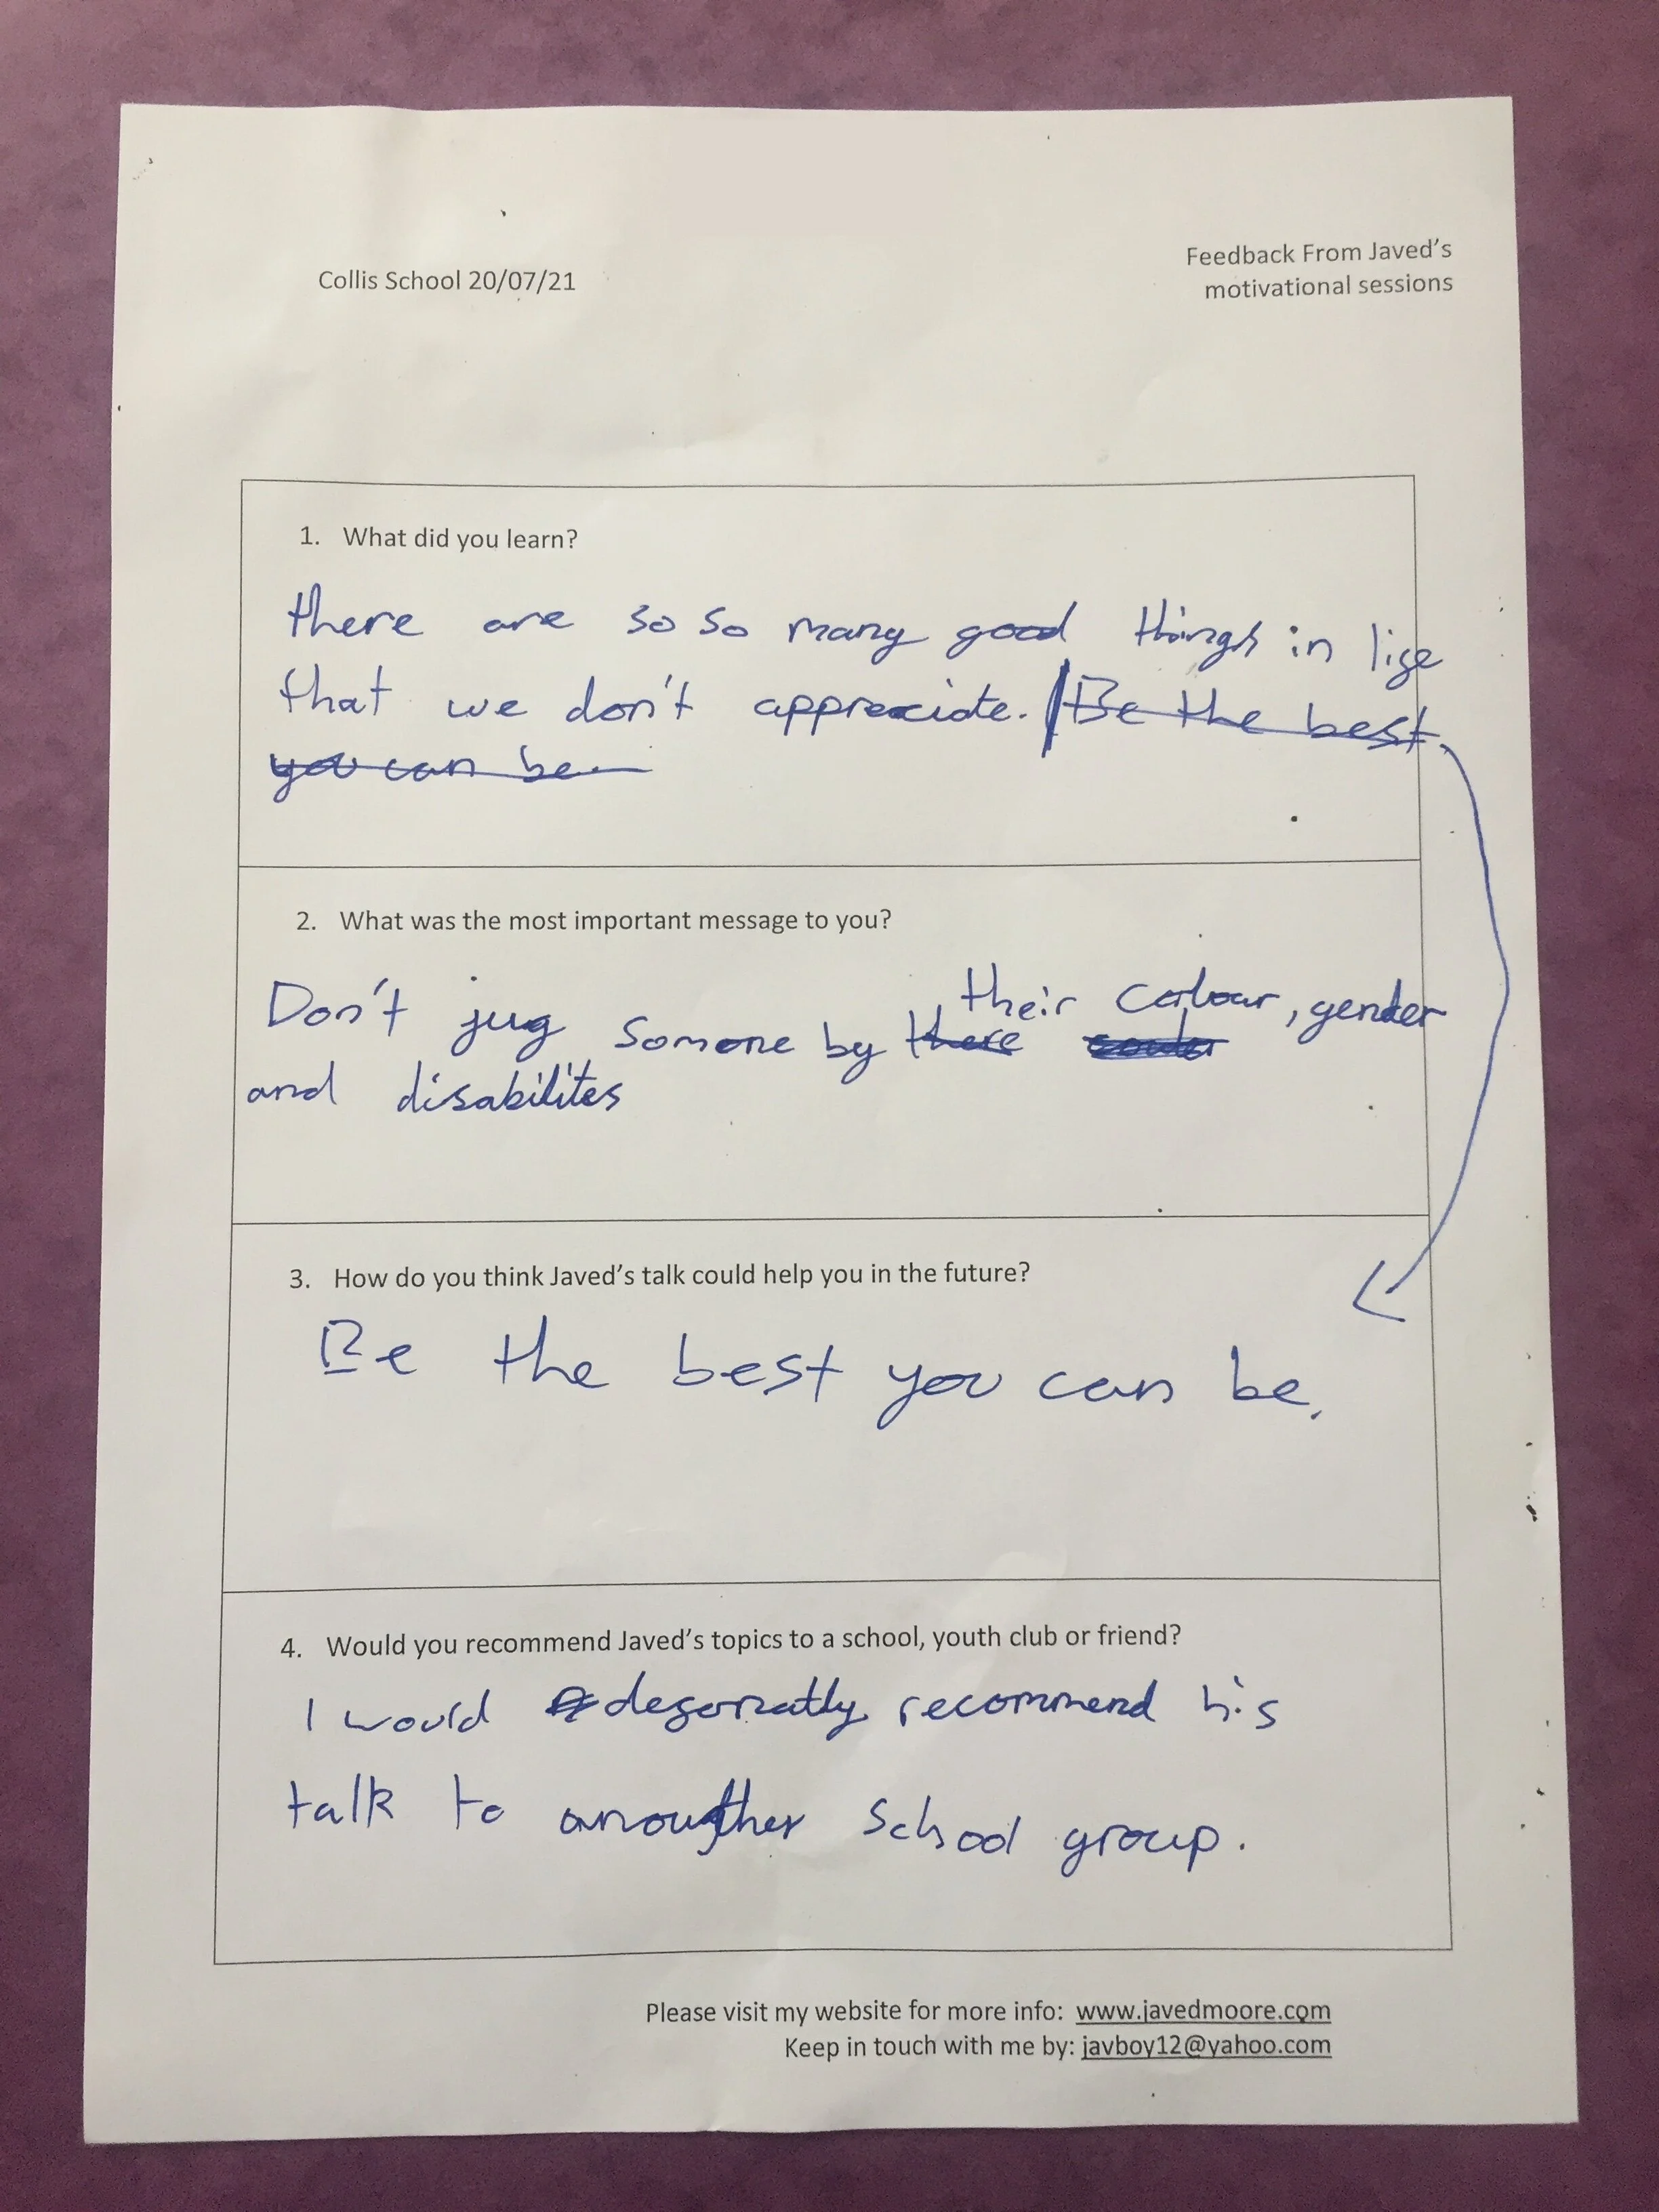 Collis School 20/07/21
Feedback From Javed's
motivational sessions
1. What did you learn?
there are so so many good things in life
that we don't appreciate. Be the best
you can be.
2. What was the most important message to you?
Don't jug somone by there their colour, gender
and disabilites
3. How do you think Javed's talk could help you in the future?
Be the best you can be.
4. Would you recommend Javed's topics to a school, youth club or friend?
I would defernatly recommend his
talk to anougther school group.
Please visit my website for more info: www.javedmoore.com
Keep in touch with me by: javboy12@yahoo.com